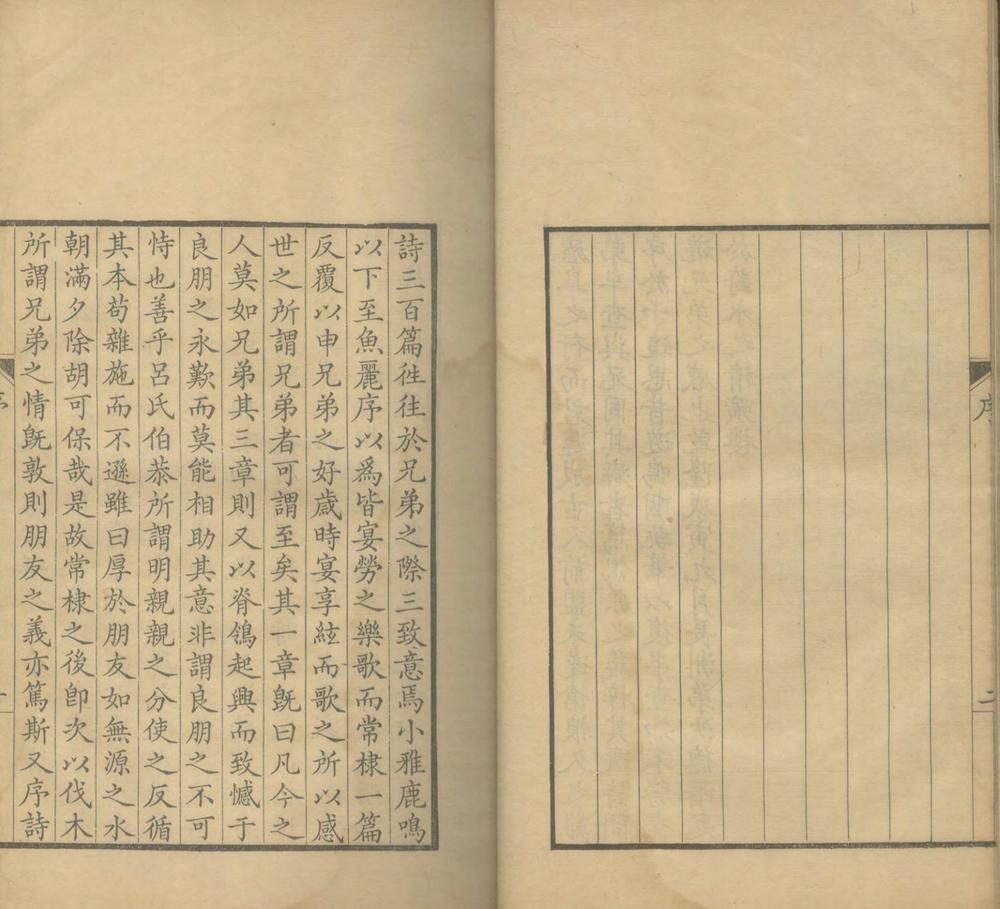 序
二
詩三百篇徃徃於兄弟之際三致意焉小雅鹿鳴
以下至魚麗序以爲皆宴勞之樂歌而常棣一篇
反覆以申兄弟之好歲時宴享絃而歌之所以感
世之所謂兄弟者可謂至矣其一章旣曰凡今之
人莫如兄弟其三章則又以脊鴒起興而致憾于
良朋之永歎而莫能相助其意非謂良朋之不可
恃也善乎呂氏伯恭所謂明親親之分使之反循
其本苟雜施而不遜雖曰厚於朋友如無源之水
朝滿夕除胡可保哉是故常棣之後卽次以伐木
所謂兄弟之情旣敦則朋友之義亦篤斯又序詩